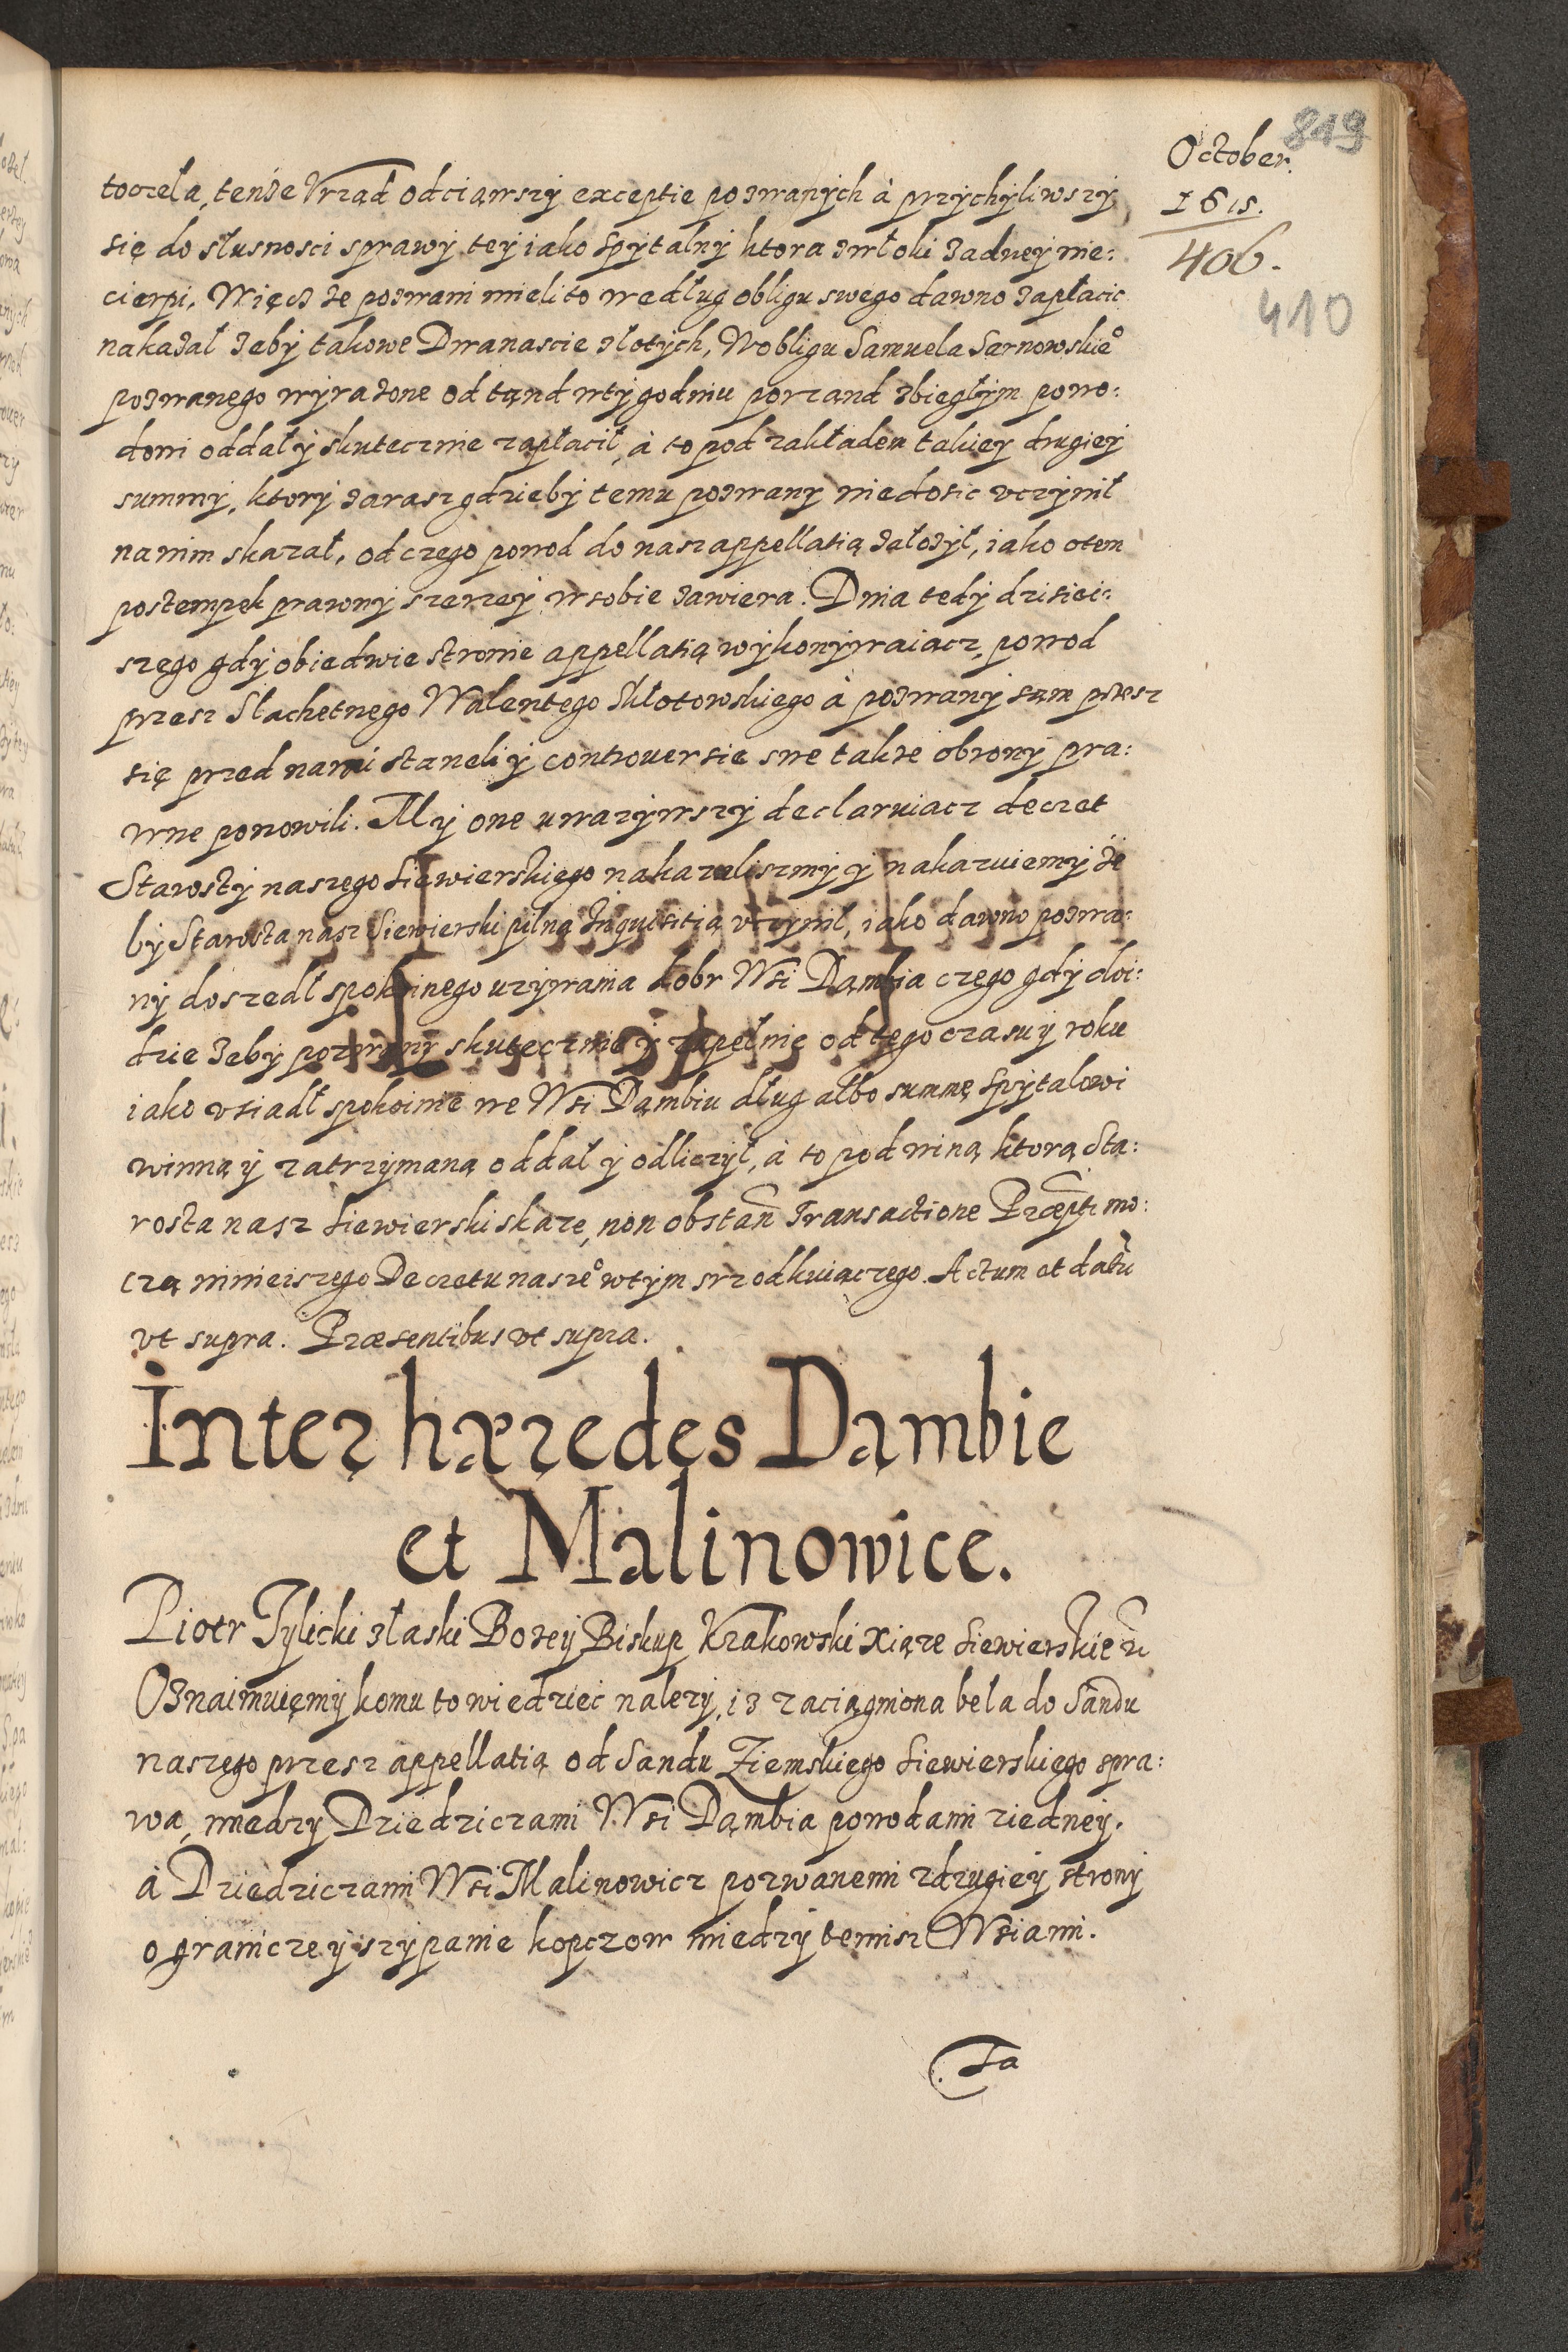 819
October.
1615.
406.
410
toczeła, tenże Vrząd odciąwszy exceptie pozwanych à przychyliwszy
się do słusnosci sprawy tey iako spytalny ktora zwłoki zadney nie:
cierpi. Więcz że pozwani mieli to według obligu swego dawno zapłacic
nakazał żeby takowe Dwanascie złotych, W obligu Samuela Sarnowskie°
pozwanego wyrażone od tąnd w tygodniu porzand zbiegłym powo:
dowi oddał y skutecznie zapłacił, à to pod zakładem takiey drugiey
summy, ktory zarasz gdzieby temu pozwany niedosic vczynił
na nim skazał, od czego powod do nasz appellatią założył, iako o tem
postempek prawny szerzey w sobie zawiera. Dnia tedy dzisiei:
szego gdy obiedwie stronie appellatią wykonywaiacz, powod
przesz Slachetnego Walentego Skłotowskiego à pozwany sam przesz
się przed nami staneli y controuersie swe także obrony pra:
wne ponowili. My one uwazywszy declaruiacz decret
Starosty naszego Siewierskiego nakazaliszmy y nakazuiemy że
by Starosta nasz Siewierski pilną Inquisitią vczynił, iako dawno pozwa:
ny doszedł spokoinego uzywania dobr Wsi Dąmbia czego gdy doi:
dzie żeby pozwany skutecznie y zupełnie od tego czasu y roku
iako vsiadł spokoinie we Wsi Dąmbiu dług albo summę spytalowi
winną y zatrzymaną oddał y odliczył, à to pod winą ktorą Sta:
rosta nasz Siewierski skaze, non obstañ Transactione Præpti mo:
czą ninieiszego Decretu nasze° w tym srzodkuiączego. Actum et datũ
vt supra. Præsentibus vt supra.
Inter hæredes Dąmbie
et Malinowice.
Piotr Tylicki z łaski Bozey Biskup Krakowski Xiąze Siewierskie &c
Oznaimuięmy komu to wiedziec nalezy, iż zaciągniona beła do Sandu
naszego przesz appellatią od Sandu Ziemskiego Siewierskiego spra:
wa, miedzy Dziedziczami Wsi Dąmbia powodami z iedney.
à Dziedziczami Wsi Malinowicz pozwanemi z drugiey strony
o granicze y szypanie kopczow miedzy temisz Wsiami.
Ta